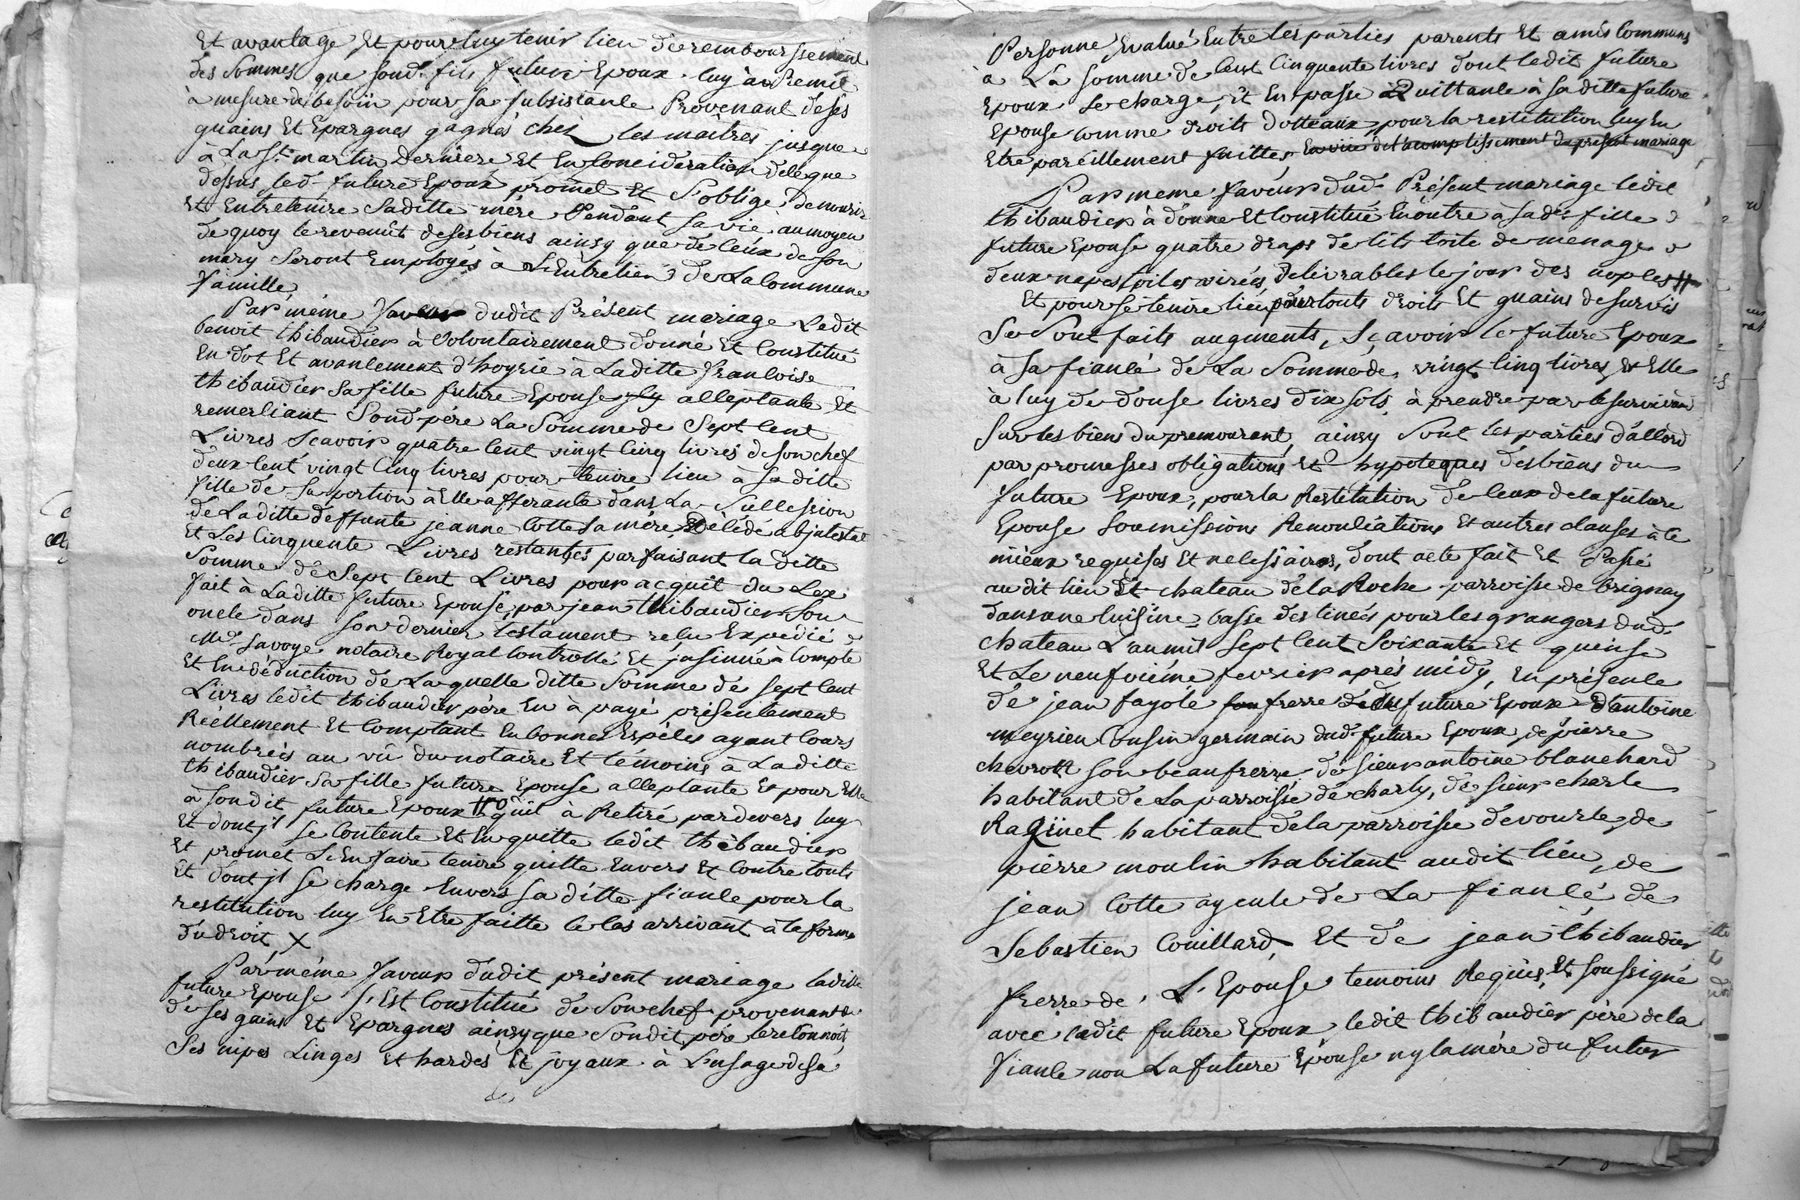 Et avantage Et pour luy tenir lien de remboursement
des Sommes que sond. fils future Epoux luy à Remit
à mesure de besoin pour sa subsistance Provenant de ses
guains Et Epargnes gagnés chez les maitres jusque
à La St. martin derniere Et En Concideration de ce que
dessus led. future Epoux promet Et S'oblige de nourir
Et Entretenire Saditte mére Pendant sa vie au moyen
de quoy le revenût de ses biens ainsy que de Ceux de son
mary Seront Employés à L'Entretien de La Commune
famille
Par méme faveur dudit Présent mariage Ledit
benoit thibaudier à volontairement donné Et Constitué
En dot Et avancement d'hoyrie à Laditte francoise
thibaudier sa fille future Epouse jcy acceptante Et
remerciant Sond. pére La Somme de Sept Cent
Livres Scavoir quatre Cent vingt Cinq livres de son chef
deux Cent vingt Cinq livres pour tenire lieu à sa ditte
fille de sa portion à Elle afferante dans La Succession
de La ditte deffunte jeanne Cotte sa mére décédé abjntestat
Et Les Cinquente Livres restantes parfaisant la ditte
Somme de Sept Cent Livres pour acquit du Lex
fait à Laditte future Epouse, par jean thibaudier Son
oncle dans son dernier testament relu Expedié
Me. Savoye notaire Royal Controllé Et jnsinué à Compte
Et En déduction de La quelle ditte Somme de sept Cent
Livres ledit thibaudier pére En à payé présentement
Réellement Et Comptant En bonnes Espéces ayant Cours
nombreés au vû du notaire Et témoins à La ditte
thibaudier sa fille future Epouse acceptante Et pour Elle
à sondit future Epoux # qu'il à Retiré pardevers luy
Et dont jl se Contente Et En quitte ledit thibaudier
Et promet L'En faire tenire quitte Envers Et Contre touts
Et dont jl se charge Envers sa ditte fiancé pour la
restitution luy En Etre faitte le Cas arrivant à la forme
du droit X
Par méme faveur dudit présent mariage laditte
future Epouse s'Est Constitué de Son chef provenant de
de ses gains Et Epargnes ainsy que Sondit pére le reconnoit
Ses nipes Linges Et hardes Et joyaux à L'usage de sa
Personne Evalué Entre Les parties parents Et amis Communs
à La somme de Cent Cinquente livres dont ledit future
Epoux se charge, Et En passe Quittance à sa ditte future
Epouse comme droits dotteaux pour la restitution luy En
Etre pareillement faitte
Par meme faveur dud. Présent mariage ledit
thibaudier à donne Et Constitué En outre à sa de. fille
future Epouse quatre draps de lits toile de menage
deux napes toiles délivrables le jour des nopces #
Et pour se tenire lieu pour touts droits Et guains de survis
Se Sont faits augments, Sçavoir le future Epoux
à sa fiancé de La Somme de vingt Cinq livres Et Elle
à luy de douse livres dix sols à prendre par le survivant
Sur les biens du premourant ainsy Sont les parties d'accord
par promesses obligations Et hypoteques des biens du
future Epoux, pour la Restitution de Ceux de la future
Epouse Soumissions Renonciations Et autres clauses à ce
mieux requises Et necessaires, dont acte fait Et Passé
audit lieu Et chateau de la Roche parroisse de brignay
dans une Cuisine basse destineés pour les grangers dud.
chateau L'an mil Sept Cent Soixante Et quinse
Et Le neufviéme fevrier aprés midy, En présence
de jean fayole frerre dudit future Epoux d'antoine
meyrieu Cousin germain dud. future Epoux, de pierre
chevrott son beaufrerre, de sieur antoine blanchard
habitant de La parroisse de charly, de sieur charle
Raginel habitant de la parroisse de vourle, de
pierre moulin habitant audit lieu, de
jean Cotte ayeule de La fiancé de
Sebastien Couillard Et de jean thibaudier
frerre de L'Epouse temoins Requis, Et Soussigné
avec ledit future Epoux ledit thibaudier pére de la
fiancé non La future Epouse ny la mére du futur